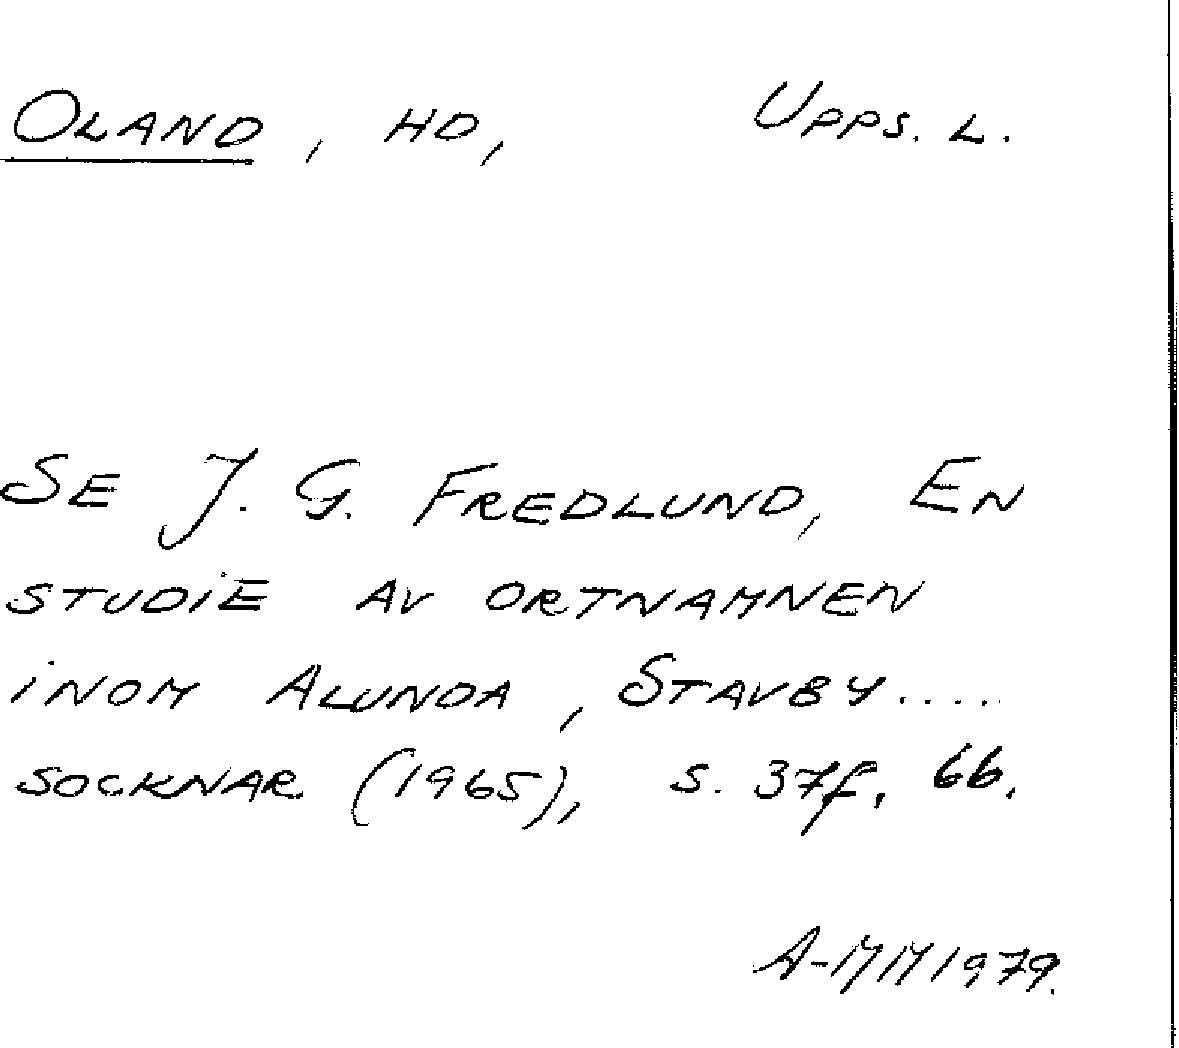 OLAND, HD, UPPS. L.
SE J. G. FREDLUND, EN
STUDIE AV ORTNAMNEN
INOM ALUNDA, STAVBY.....
SOCKNAR (1965), S. 37f, 66.
A-MM 1979.